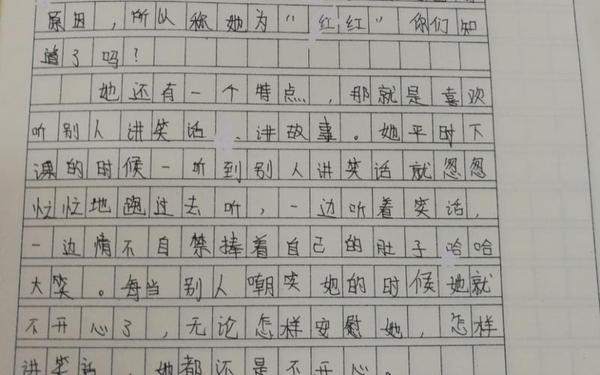 原因，所以称她为“红红”你们知
道了吗？
她还有一个特点，那就是喜欢
听别人讲笑话、讲故事。她平时下
课的时候一听到别人讲笑话就忽忽
忙忙地跑过去听，一边听着笑话，
一边情不自禁捧着自己的肚子哈哈
大笑。每当别人嘲笑她的时候她就
不开心了，无论怎样安慰她，怎样
讲笑话，她都还是不开心。